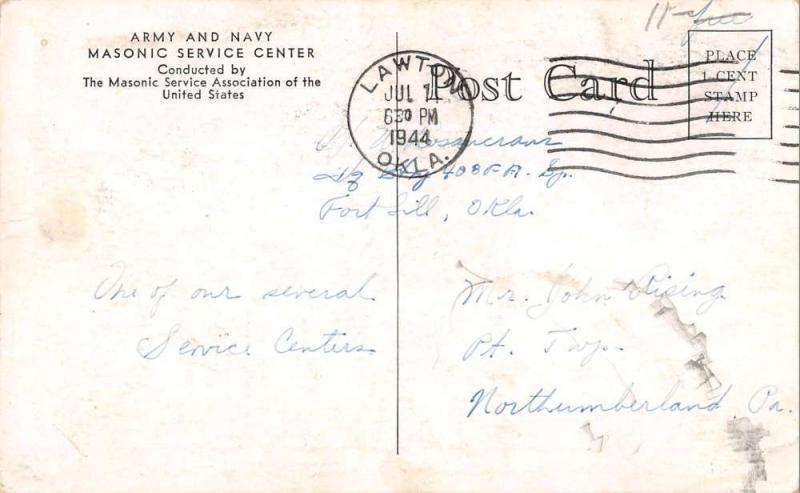 ARMY AND NAVY
MASONIC SERVICE CENTER
Conducted by
The Masonic Service Association of the
United States
LAWTON
JUL 1
630 PM
1944
OKLA.
Post Card
Free
PLACE
1 CENT
STAMP
HERE
Btry 408 F.A. Gp.
Fort Sill, Okla.
One of our several
Service Centers
Mr. John Rising
Pt. Twp.
Northumberland, Pa.